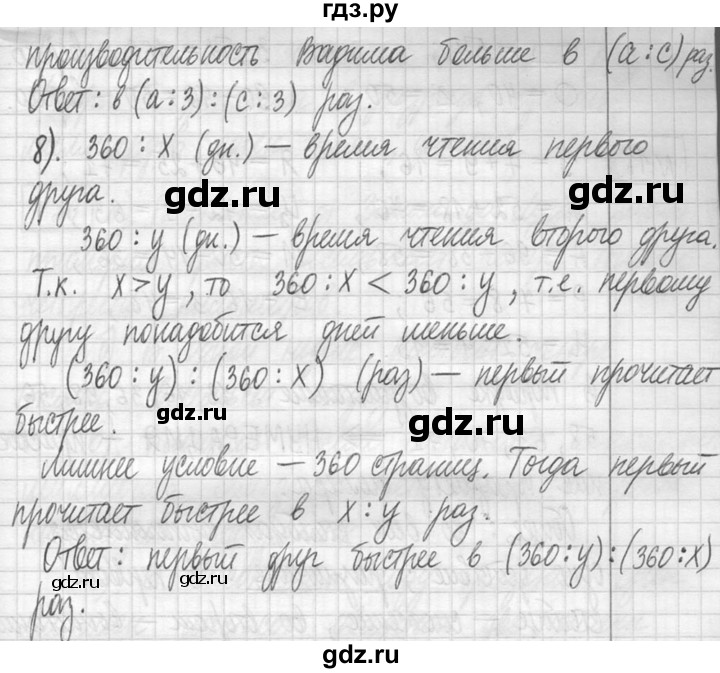 гдз.ру
производительность Вадима больше в (a:c) раз.
Ответ: в (a:3):(c:3) раз.
8). 360:x (дн.) — время чтения первого
друга.
gdz.ru
gdz.ru
360:y (дн.) — время чтения второго друга.
Т.к. x>y, то 360:x < 360:y, т.е. первому
другу понадобится дней меньше.
(360:y):(360:x) (раз) — первый прочитает
быстрее.
gdz.ru
gdz.ru
Лишнее условие — 360 страниц. Тогда первый
прочитает быстрее в x:y раз.
Ответ: первый друг быстрее в (360:y):(360:x)
gdz.ru
gdz.ru
раз.
gdz.ru